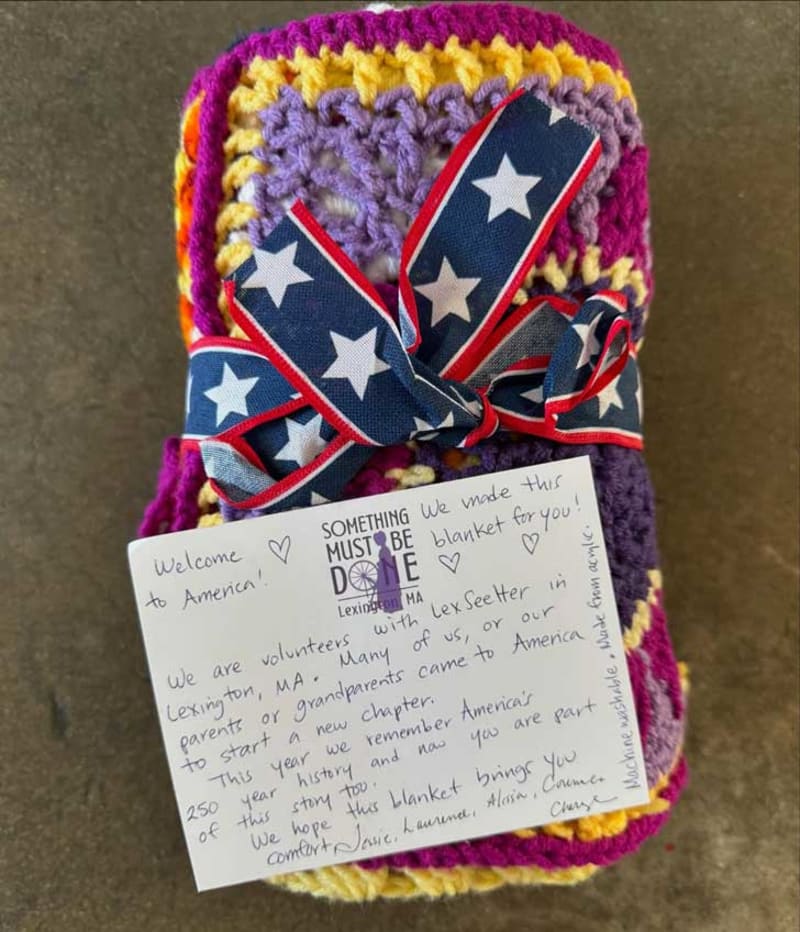 Welcome
to America!
SOMETHING
MUST BE
DONE
Lexington, MA
We made this
blanket for you!
We are volunteers with LexSeeHer in
Lexington, MA. Many of us, or our
parents or grandparents came to America
to start a new chapter.
This year we remember America's
250 year history and now you are part
of this story too.
We hope this blanket brings you
comfort, Jessie, Laurence, Alissa,
Machine washable. Made from acrylic.